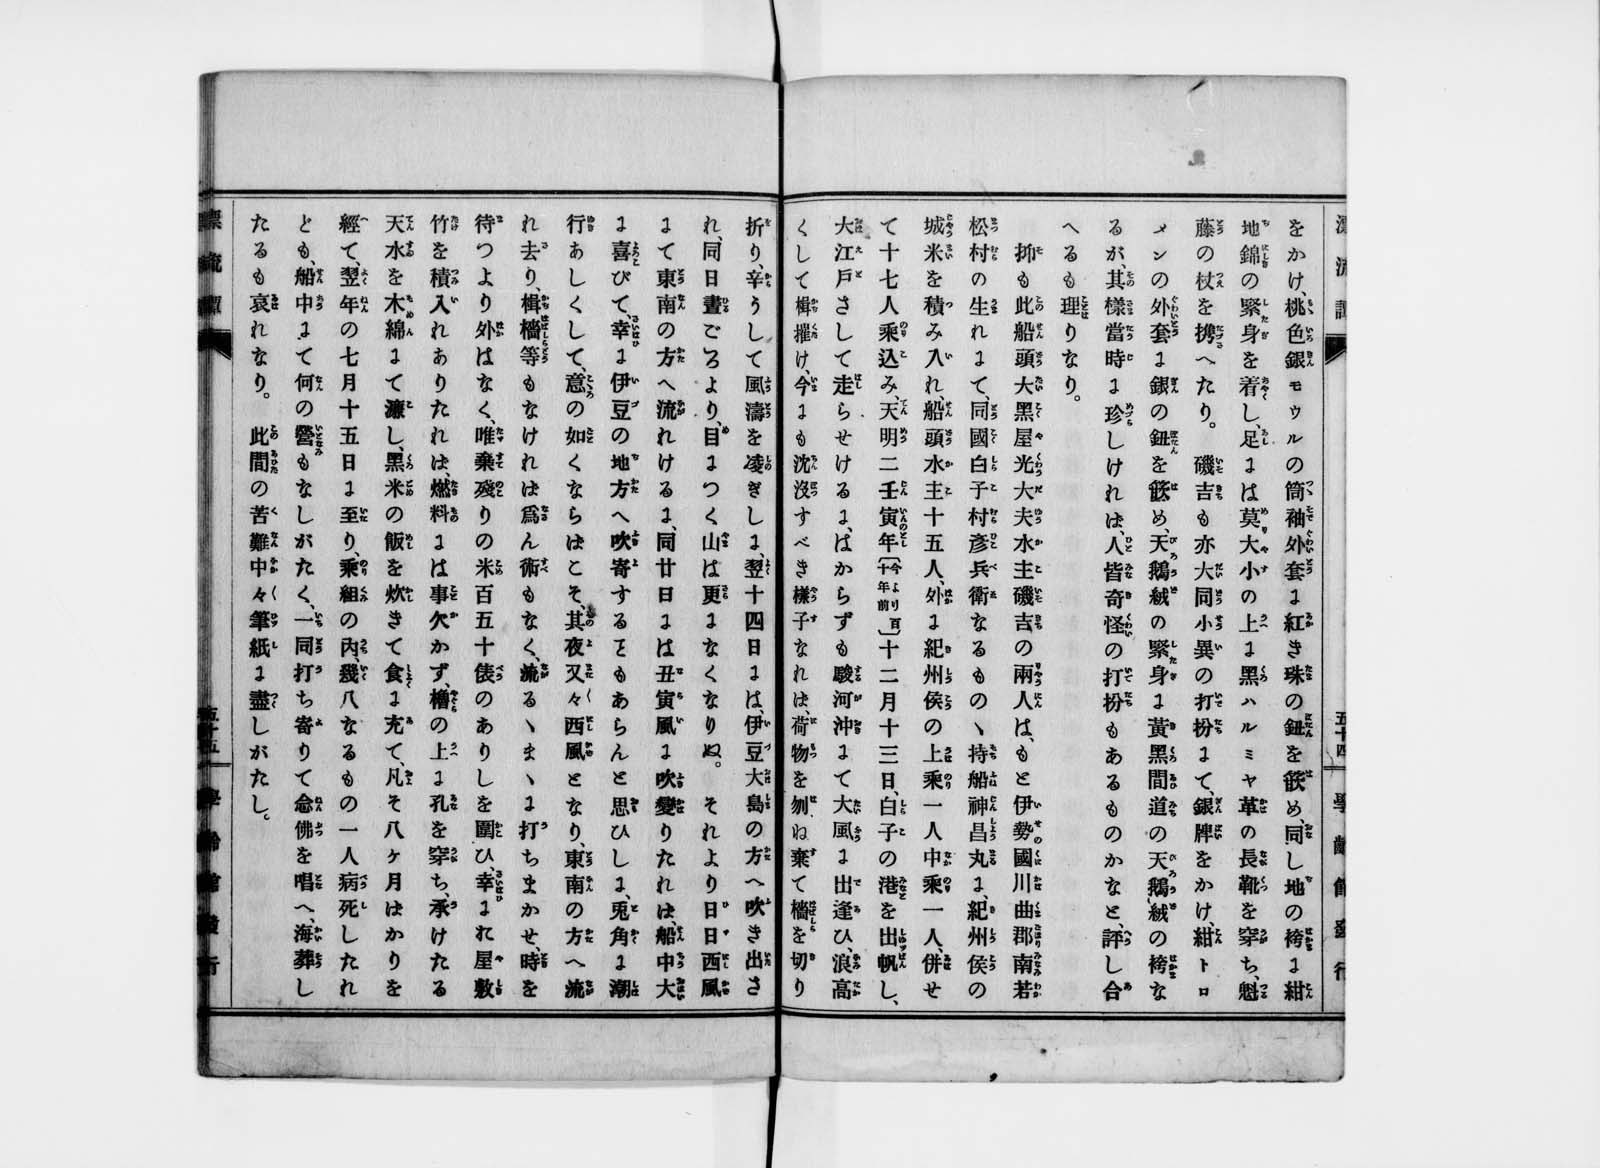 漂流譚
五十四
學齡館發行
をかけ、桃色銀モウルの筒袖外套に紅き珠の鈕を篏め、同し地の袴に紺
地錦の緊身を着し、足には莫大小の上に黑ハルミヤ革の長靴を穿ち、魁
藤の杖を携へたり。磯吉も亦大同小異の打扮まて、銀牌をかけ、紺トロ
メンの外套に銀の鈕を篏め、天鵝絨の緊身に黃黑間道の天鵝絨の袴な
るが、其樣當時に珍しけれは、人皆奇怪の打扮もあるものかなと、評し合
へるも理りなり。
抑も此船頭大黑屋光大夫水主磯吉の兩人は、もと伊勢國川曲郡南若
松村の生れまて、同國白子村彥兵衛なるものゝ持船神昌丸に、紀州侯の
城米を積み入れ、船頭水主十五人、外に紀州侯の上乘一人中乘一人、併せ
て十七人乘込み、天明二壬寅年〔今より百十年前〕十二月十三日、白子の港を出帆し、
大江戶さして走らせけるに、はからずも駿河沖まて大風に出逢ひ、浪高
くして楫摧け、今にも沈沒すべき樣子なれは、荷物を刎ね棄て檣を切り
折り、辛うして風濤を凌ぎしに、翌十四日には、伊豆大島の方へ吹き出さ
れ、同日晝ごろより、目につく山は更になくなりぬ。それより日日西風
まて東南の方へ流れけるに、同廿日には丑寅風に吹變りたれは、船中大
に喜びて、幸に伊豆の地方へ吹寄するともあらんと思ひしに、兎角に潮
行あしくして、意の如くならはこそ、其夜又々西風となり、東南の方へ流
れ去り、楫檣等もなけれは爲ん術もなく、流るゝまゝに打ちまかせ、時を
待つより外はなく、唯棄殘りの米百五十俵のありしを圍ひ、幸にれ屋敷
竹を積入れありたれは、燃料には事欠かず、櫓の上に孔を穿ち、承けたる
天水を木綿まて濾し、黑米の飯を炊きて食に充て、凡そ八ヶ月はかりを
經て、翌年の七月十五日に至り、乘組の內、幾八なるもの一人病死したれ
とも、船中まて何の營もなしがたく、一同打ち寄りて念佛を唱へ、海葬し
たるも哀れなり。此間の苦難中々筆紙に盡しがたし。
漂流譚
五十五
學齡館發行